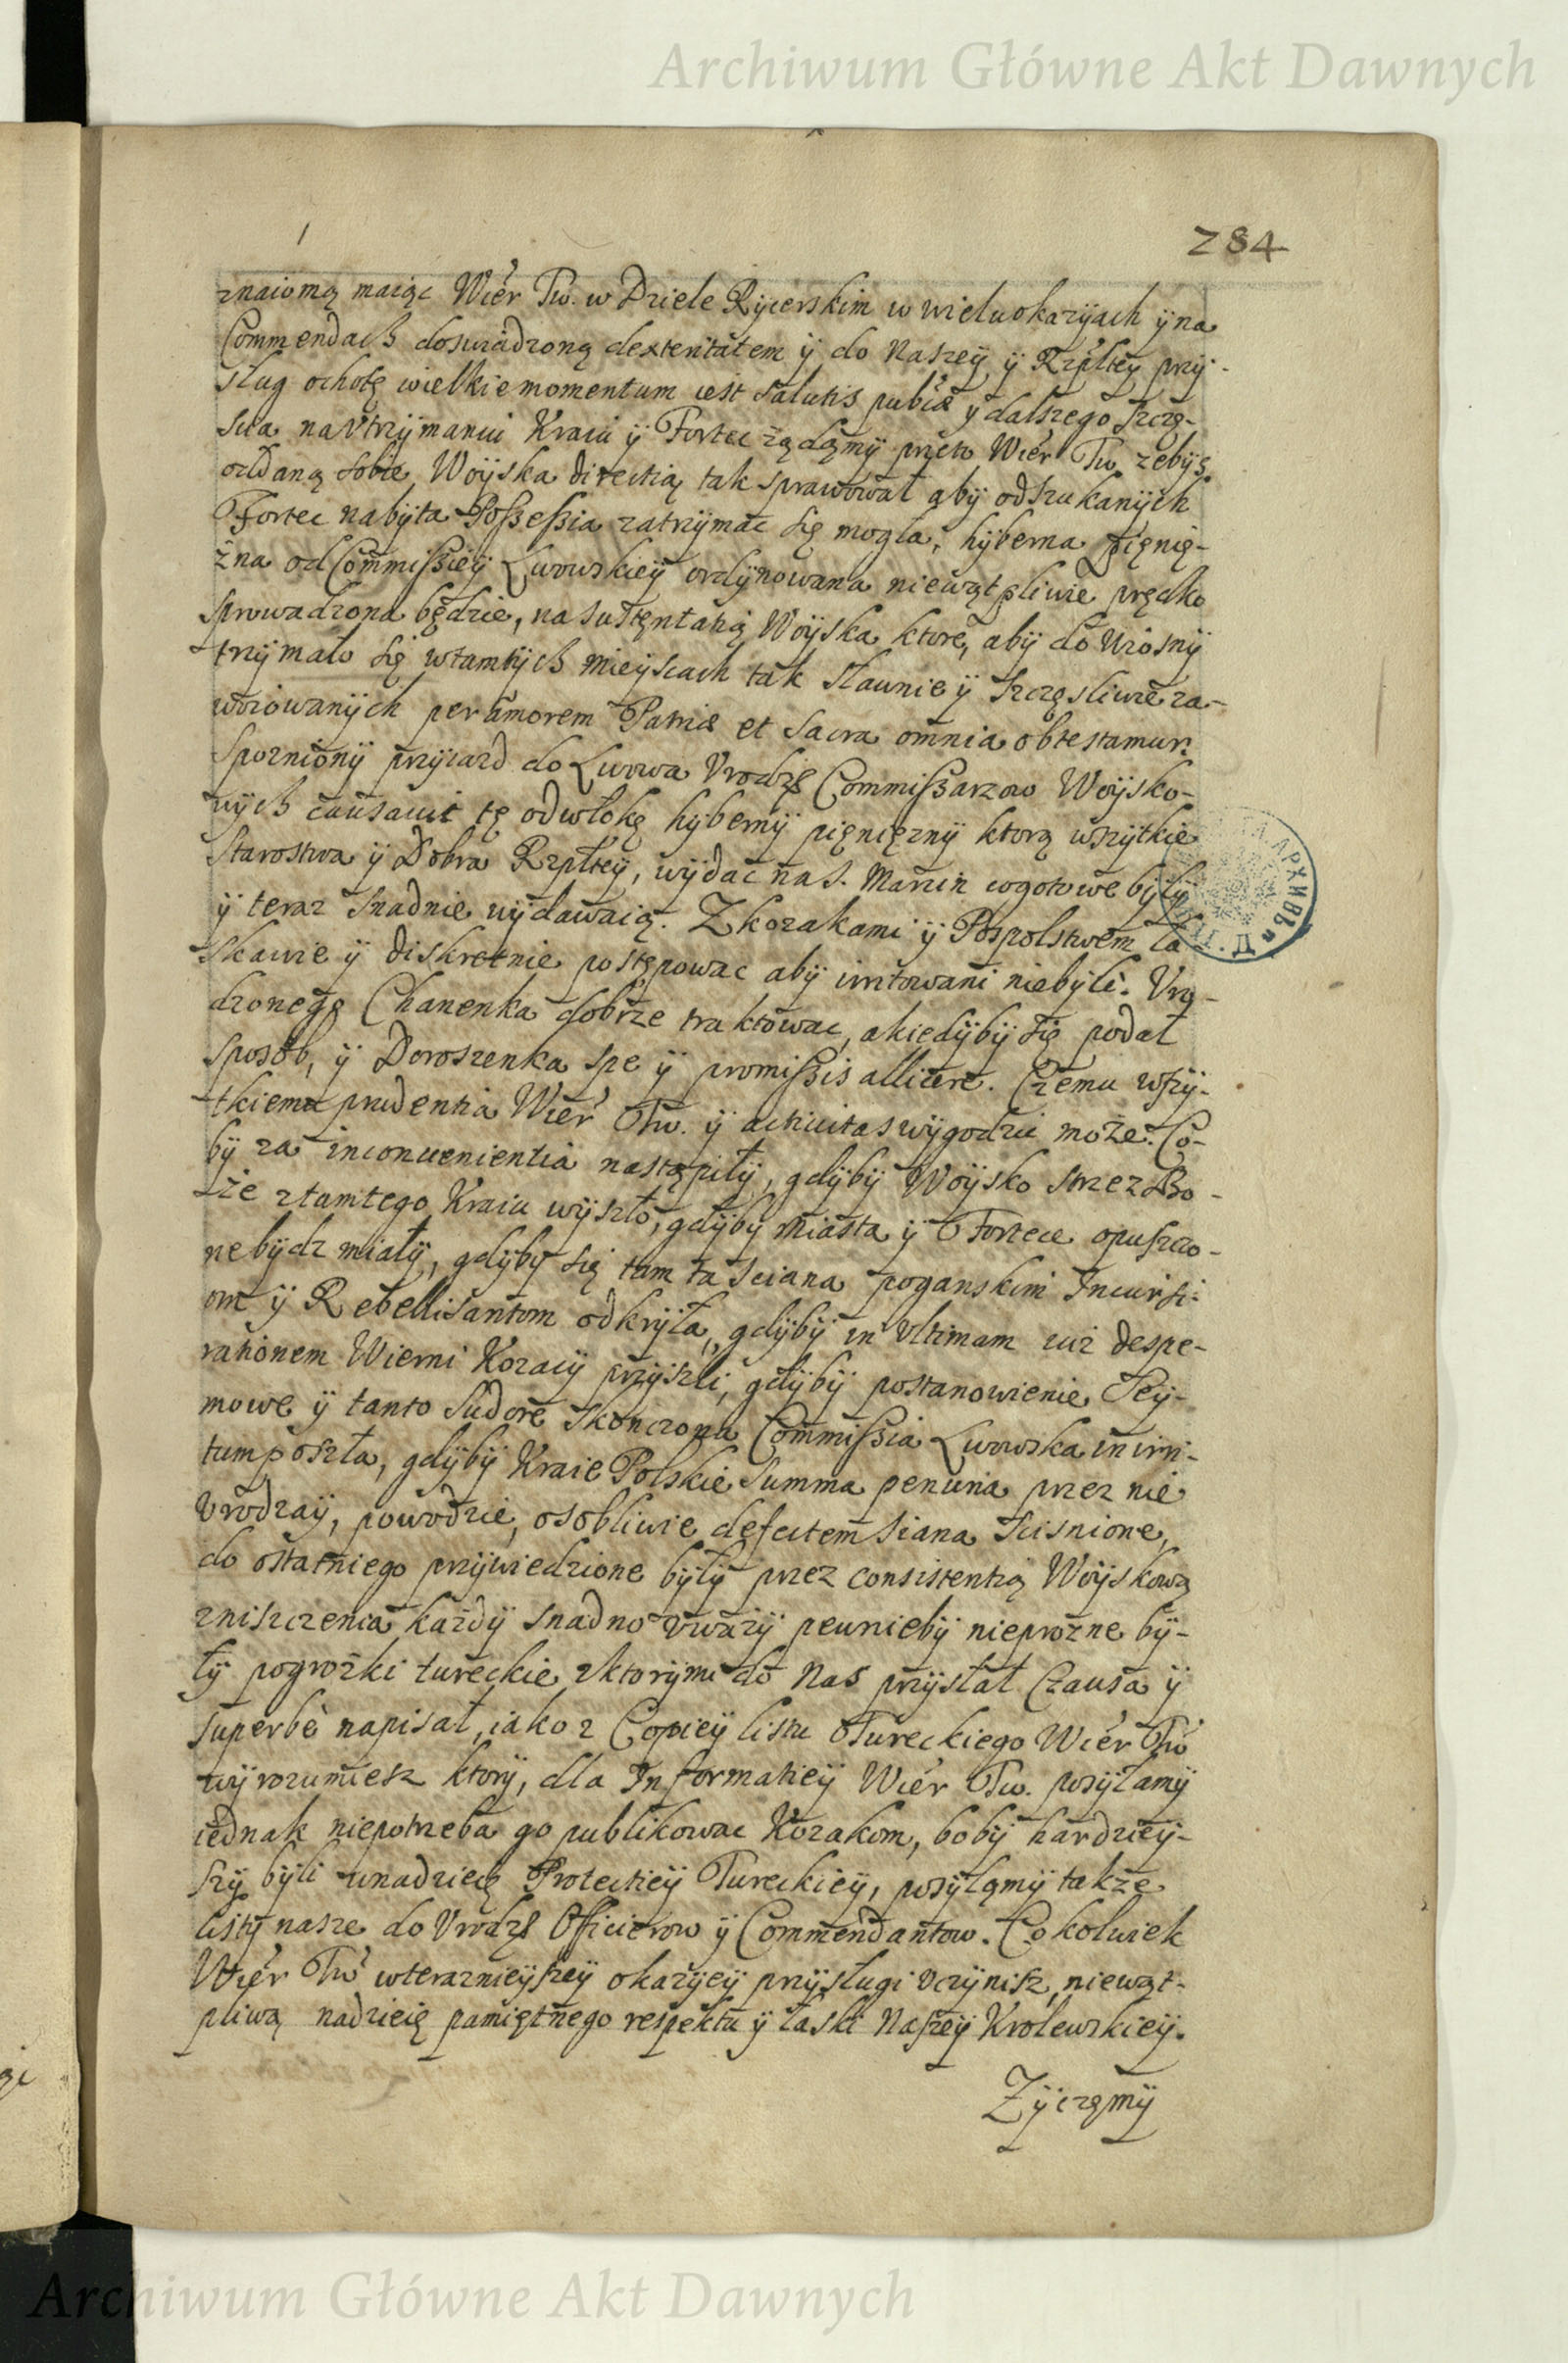 Archiwum Główne Akt Dawnych
284
znaiomą maiąc Wier Tw. w Dziele Rycerskim w wielu okazÿach ÿ na
Commendach doswiadzoną dexteritatem ÿ do Naszeÿ ÿ Rzpltey przÿ-
sług ochotę wielkie momentum iest Salutis publicæ y dalszego szczę-
scia na vtrzÿmaniu Kraiu ÿ Fortec żądamÿ przeto Wier Tw. żebÿs
oddaną sobie Woÿska directią tak sprawował abÿ odszukanÿch
Fortec nabÿta Possessia zatrzÿmac się mogła, hÿberna pięnię-
żna od Commissieÿ Lwowskieÿ ordÿnowana niewątpliwie prędko
sprowadzona będzie, na sustęntatią Woÿska ktore, abÿ do Wiosnÿ
trzÿmało się wtamtÿch mieÿscach tak sławnie ÿ szczęsliwie za-
woiowanÿch per amorem Patriæ et Sacra omnia obtestamur.
Spoznionÿ przÿiazd do Lwowa Vrodzę Commissarzow Woÿsko-
wÿch causavit tę odwłokę hÿbernÿ pięnięznÿ ktorą wszÿtkie
Starostwa ÿ Dobra Rzpłteÿ, wÿdac na S. Marcin wgotowe bÿłÿ
ÿ teraz snadnie wÿdawaią. Z kozakami ÿ Pospolstwem ła-
skawie ÿ diskretnie postępowac abÿ irritowani niebÿli. Vro-
dzonego Chanenka dobrze traktowac, a kiedÿbÿ się podał
sposob, ÿ Doroszenka spe ÿ promissis allicere. Czemu wszÿ-
tkiemu prudentia Wier Tw. ÿ activitas wÿgodzic może. Co-
bÿ za inconvenientia nastąpiłÿ, gdÿbÿ Woÿsko strzez Bo-
że ztamtego Kraiu wÿszło, gdÿbÿ Miasta ÿ Fortece opuszczo-
ne bÿdz miałÿ, gdÿbÿ się tam ta sciana poganskim Incursi-
om ÿ Rebellisantom odkrÿła, gdÿbÿ in Vltimam iuż despe-
rationem Wierni Kozacÿ przÿszli, gdÿbÿ postanowienie Seÿ-
mowe ÿ tanto Sudore skonczona Commissia Lwowska in irri-
tum poszła, gdÿbÿ Kraie Polskie Summa penuria przez nie
Vrodzaÿ, powodzie, osobliwie defectem siana scisnione,
do ostatniego przÿwiedzione bÿłÿ przez consistentią Woÿskową
zniszczenia każdÿ snadno vważÿ pewniebÿ nieprozne bÿ-
łÿ pogrozki tureckie zktorÿmi do Nas przÿsłał Czausa ÿ
superbè napisał, iako z Copieÿ listu Tureckiego Wier Tw
wÿrozumiesz ktorÿ, dla Informatieÿ Wier Tw. posÿłamÿ
iednak niepotrzeba go publikowac Kozakom, bobÿ hardzieÿ-
szÿ bÿli wnadzieię Protectieÿ Tureckieÿ, posÿłamÿ także
listÿ nasze do Vrodzę Officierow ÿ Commendantow. Cokolwiek
Wier Tw wterazniejszeÿ okazÿeÿ przÿsługi vczÿnisz, niewąt-
pliwą nadzieię pamiętnego respektu ÿ łaski Naszeÿ Krolewskieÿ.
Zÿczÿmÿ
Archiwum Główne Akt Dawnych